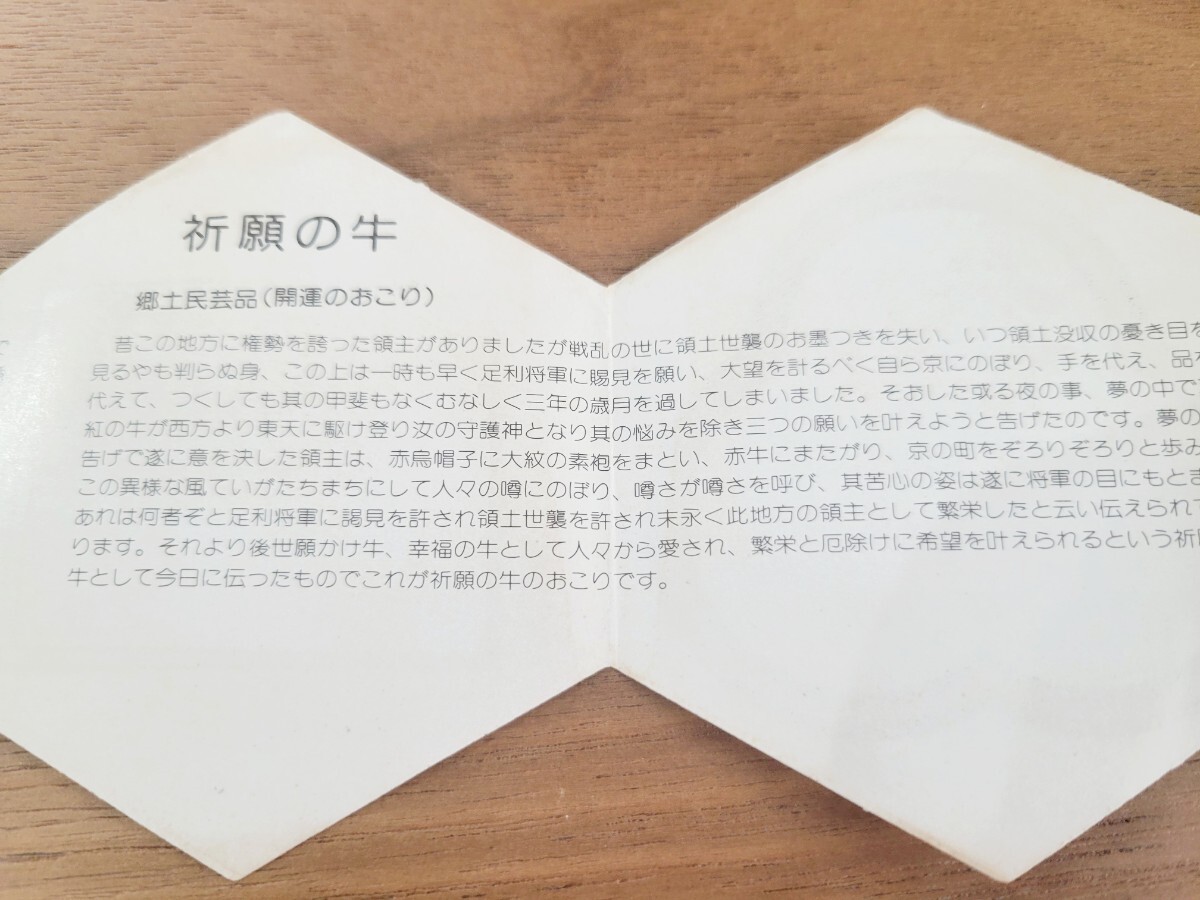 祈願の牛
郷土民芸品(開運のおこり)
昔この地方に権勢を誇った領主がありましたが戦乱の世に領土世襲のお墨つきを失い、いつ領土没収の憂き目を
見るやも判らぬ身、この上は一時も早く足利将軍に賜見を願い、大望を計るべく自ら京にのぼり、手を代え、品を
代えて、つくしても其の甲斐もなくむなしく三年の歳月を過してしまいました。そおした或る夜の事、夢の中で
紅の牛が西方より東天に駆け登り汝の守護神となり其の悩みを除き三つの願いを叶えようと告げたのです。夢の
告げで遂に意を決した領主は、赤烏帽子に大紋の素袍をまとい、赤牛にまたがり、京の町をぞろりぞろりと歩み
この異様な風ていがたちまちにして人々の噂にのぼり、噂さが噂さを呼び、其苦心の姿は遂に将軍の目にもとま
あれは何者ぞと足利将軍に謁見を許され領土世襲を許され末永く此地方の領主として繁栄したと云い伝えられて
ります。それより後世願かけ牛、幸福の牛として人々から愛され、繁栄と厄除けに希望を叶えられるという祈願
牛として今日に伝ったものでこれが祈願の牛のおこりです。